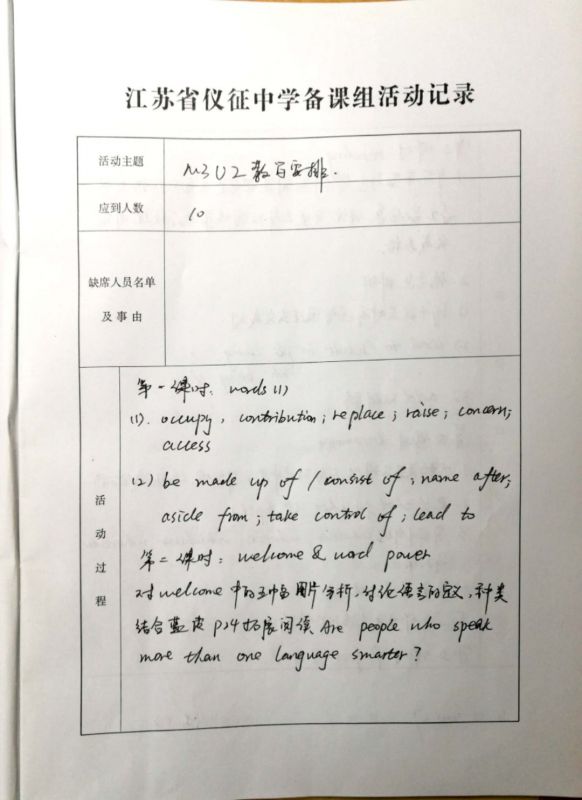 江苏省仪征中学备课组活动记录
活动主题
M3U2教学安排.
应到人数
10
缺席人员名单
及事由
活动过程
第一课时: words (1)
(1). occupy, contribution; replace; raise; concern;
access
(2) be made up of / consist of; name after;
aside from; take control of; lead to
第二课时: welcome & word power
对welcome中的五幅图片分析,讨论语言的定义,种类
结合蓝皮P24拓展阅读 Are people who speak
more than one language smarter?